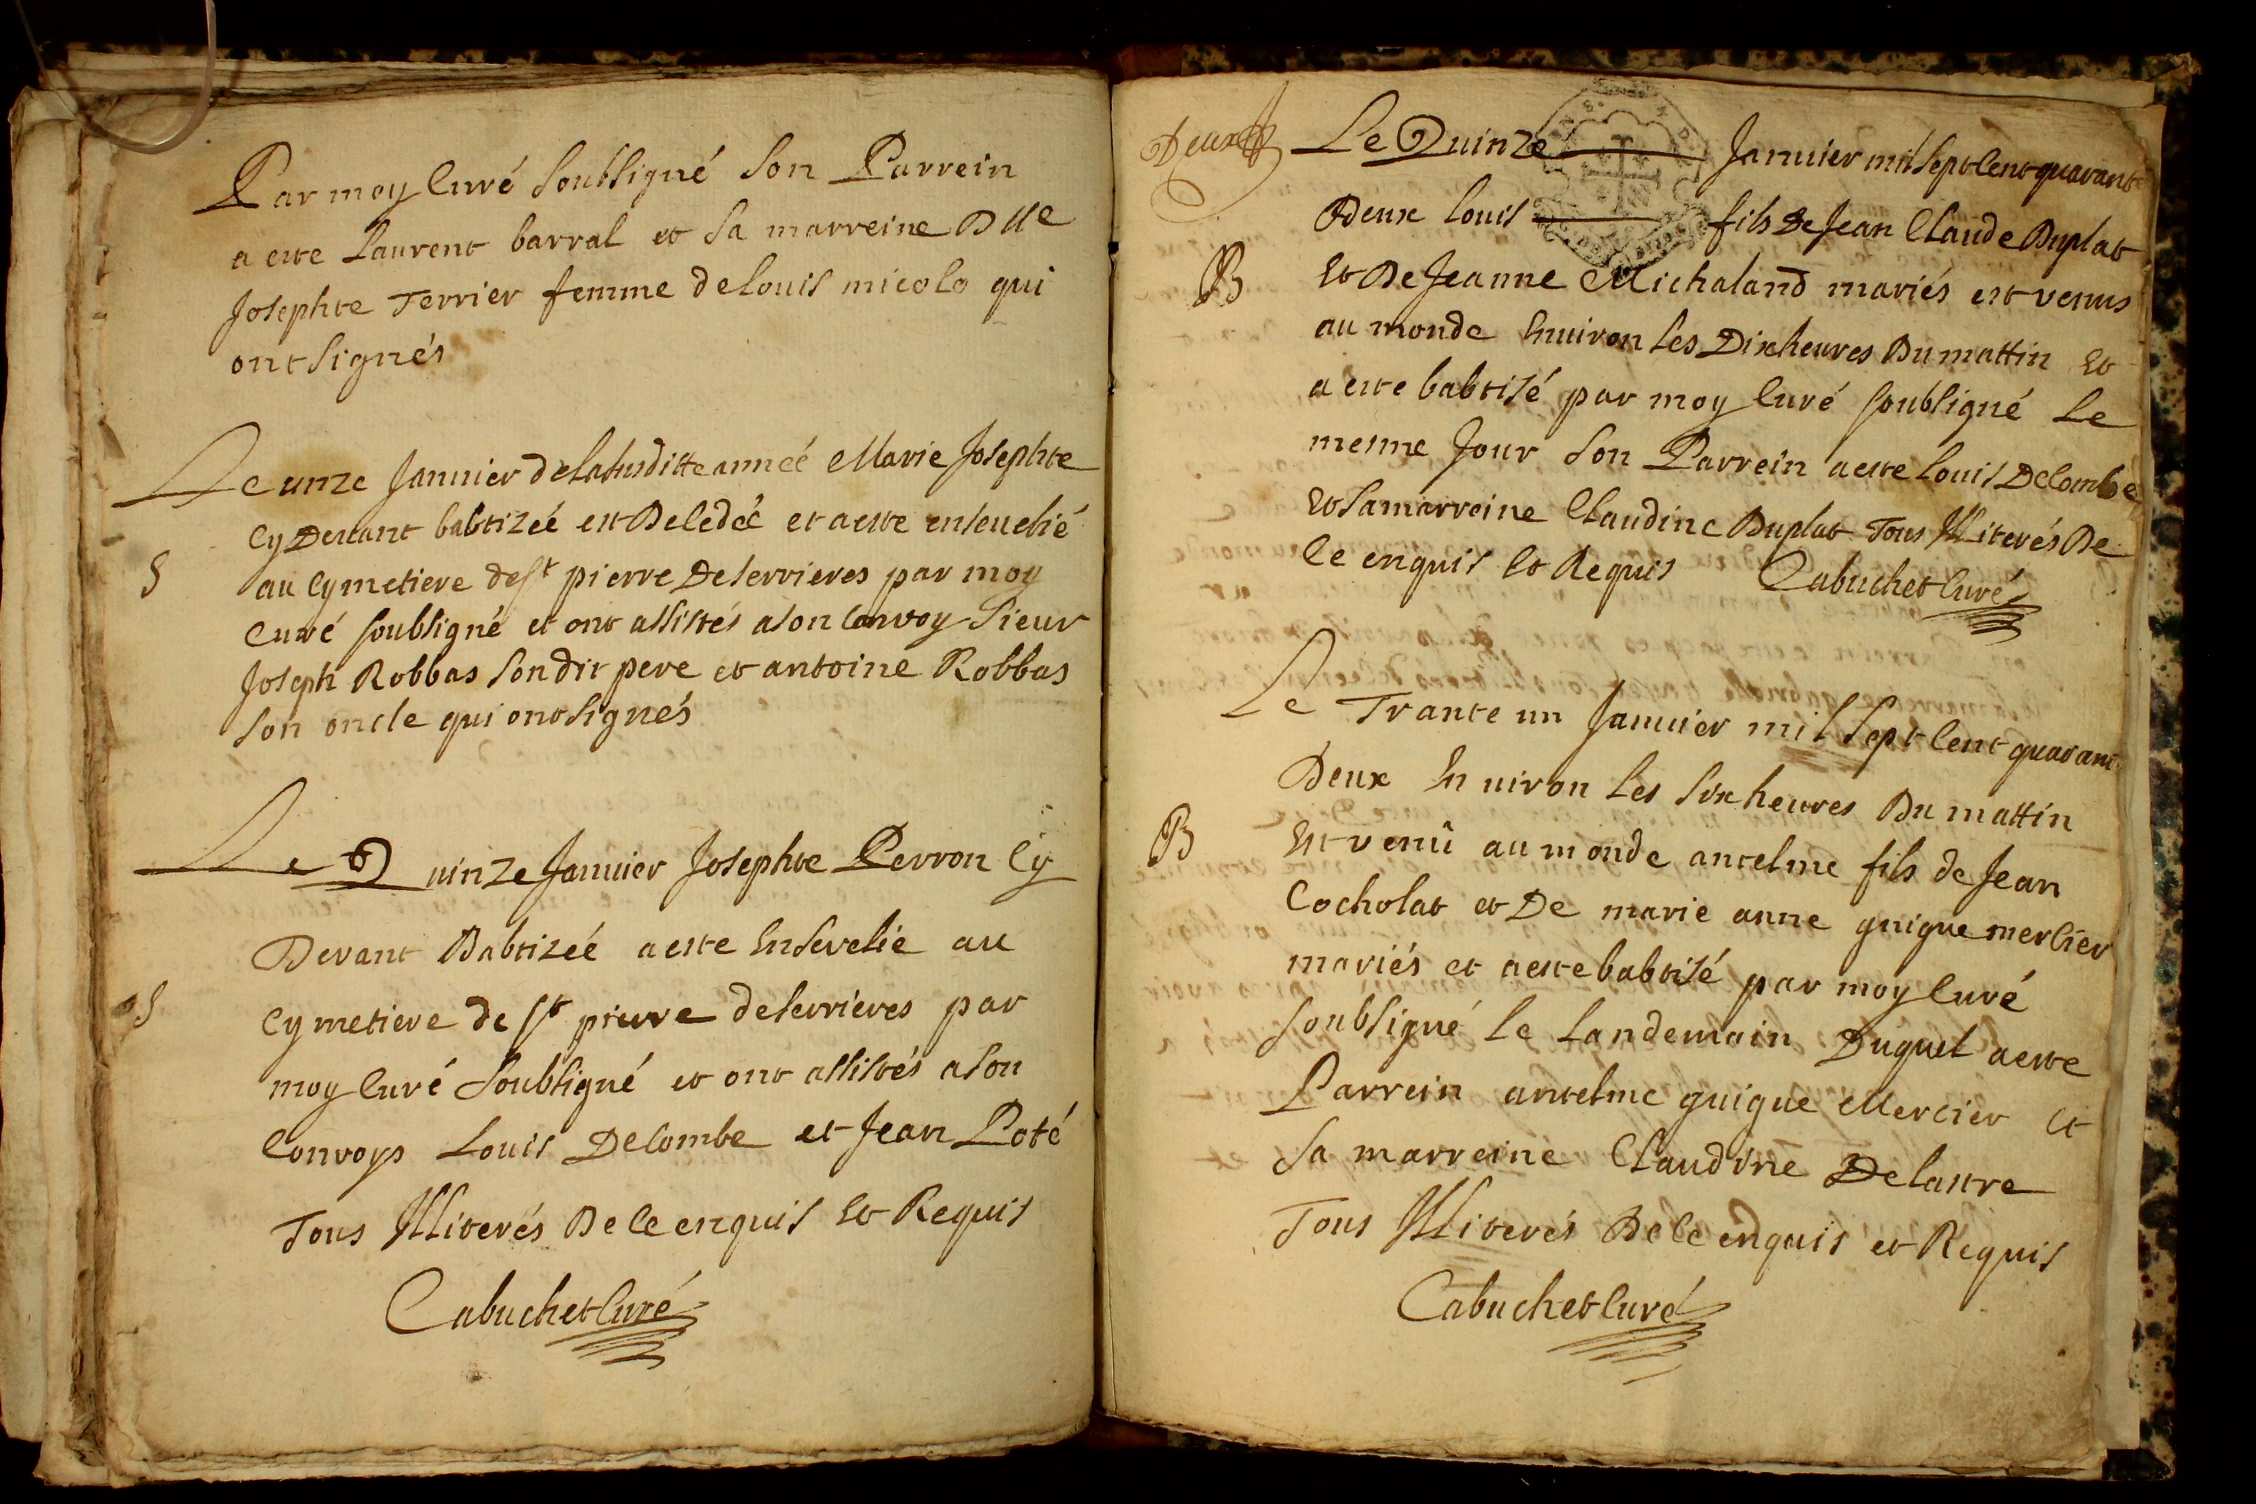 Par moy Curé soubsigné son Parrein
a este Laurent barral et sa marreine Dlle
Josephte Terrier femme de louis micolo qui
ont signés
Le unze Janvier de la susditte anneé Marie Josephte
Cy Devant babtizeé est Decedeé et a este ensevelié
S
au Cymetiere de St pierre De serrieres par moy
Curé soubsigné et ont assistés a son Convoy sieur
Joseph Robbas son dit pere et antoine Robbas
son oncle qui ont signés
Le Quinze Janvier Josephte Perron Cy
Devant Babtizeé a este Ensevelie au
S
Cymetiere de St pierre de serrieres par
moy Curé soubsigné et ont assistés a son
Convoys Louis DeCombe et Jean Poté
Tous Illiterés De Ce enquis Et Requis
Cabuchet Curé
Deux
Le Quinze Janvier mil sept Cent quarante
Deux louis fils de Jean Claude Duplat
B
Et De Jeanne Michaland mariés est venus
au monde Environ les Dix heures Du mattin Et
a este babtisé par moy Curé soubsigné Le
mesme Jour son Parrein a este louis DeCombe
Et sa marreine Claudine Duplat Tous Illiterés De
Ce enquis Et Requis Cabuchet Curé
Le Trante un Janvier mil sept Cent quarant
Deux En viron les six heures Du mattin
B
Est venû au monde antelme fils de Jean
Cocholat et De marie anne guigue merCier
mariés et a este babtisé par moy Curé
soubsigné le landemain Duquel a este
Parrein antelme guigue Mercier Et
sa marreine Claudine Delastre
Tous Illiterés De Ce enquis et Requis
Cabuchet Curé